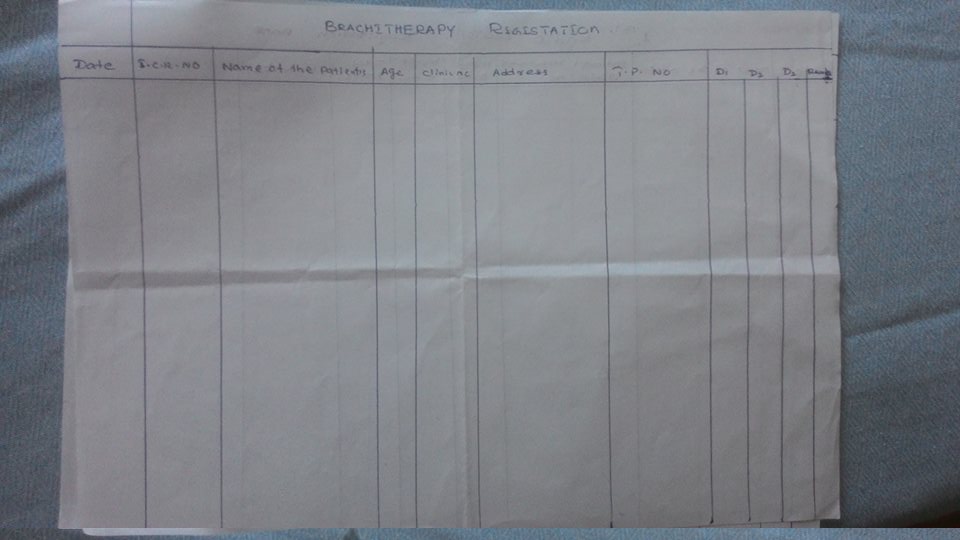 BRACHITHERAPY REGISTATION
Date S.C.R.NO Name of the Patients Age Clinic no Address T.P. NO D1 D2 D3